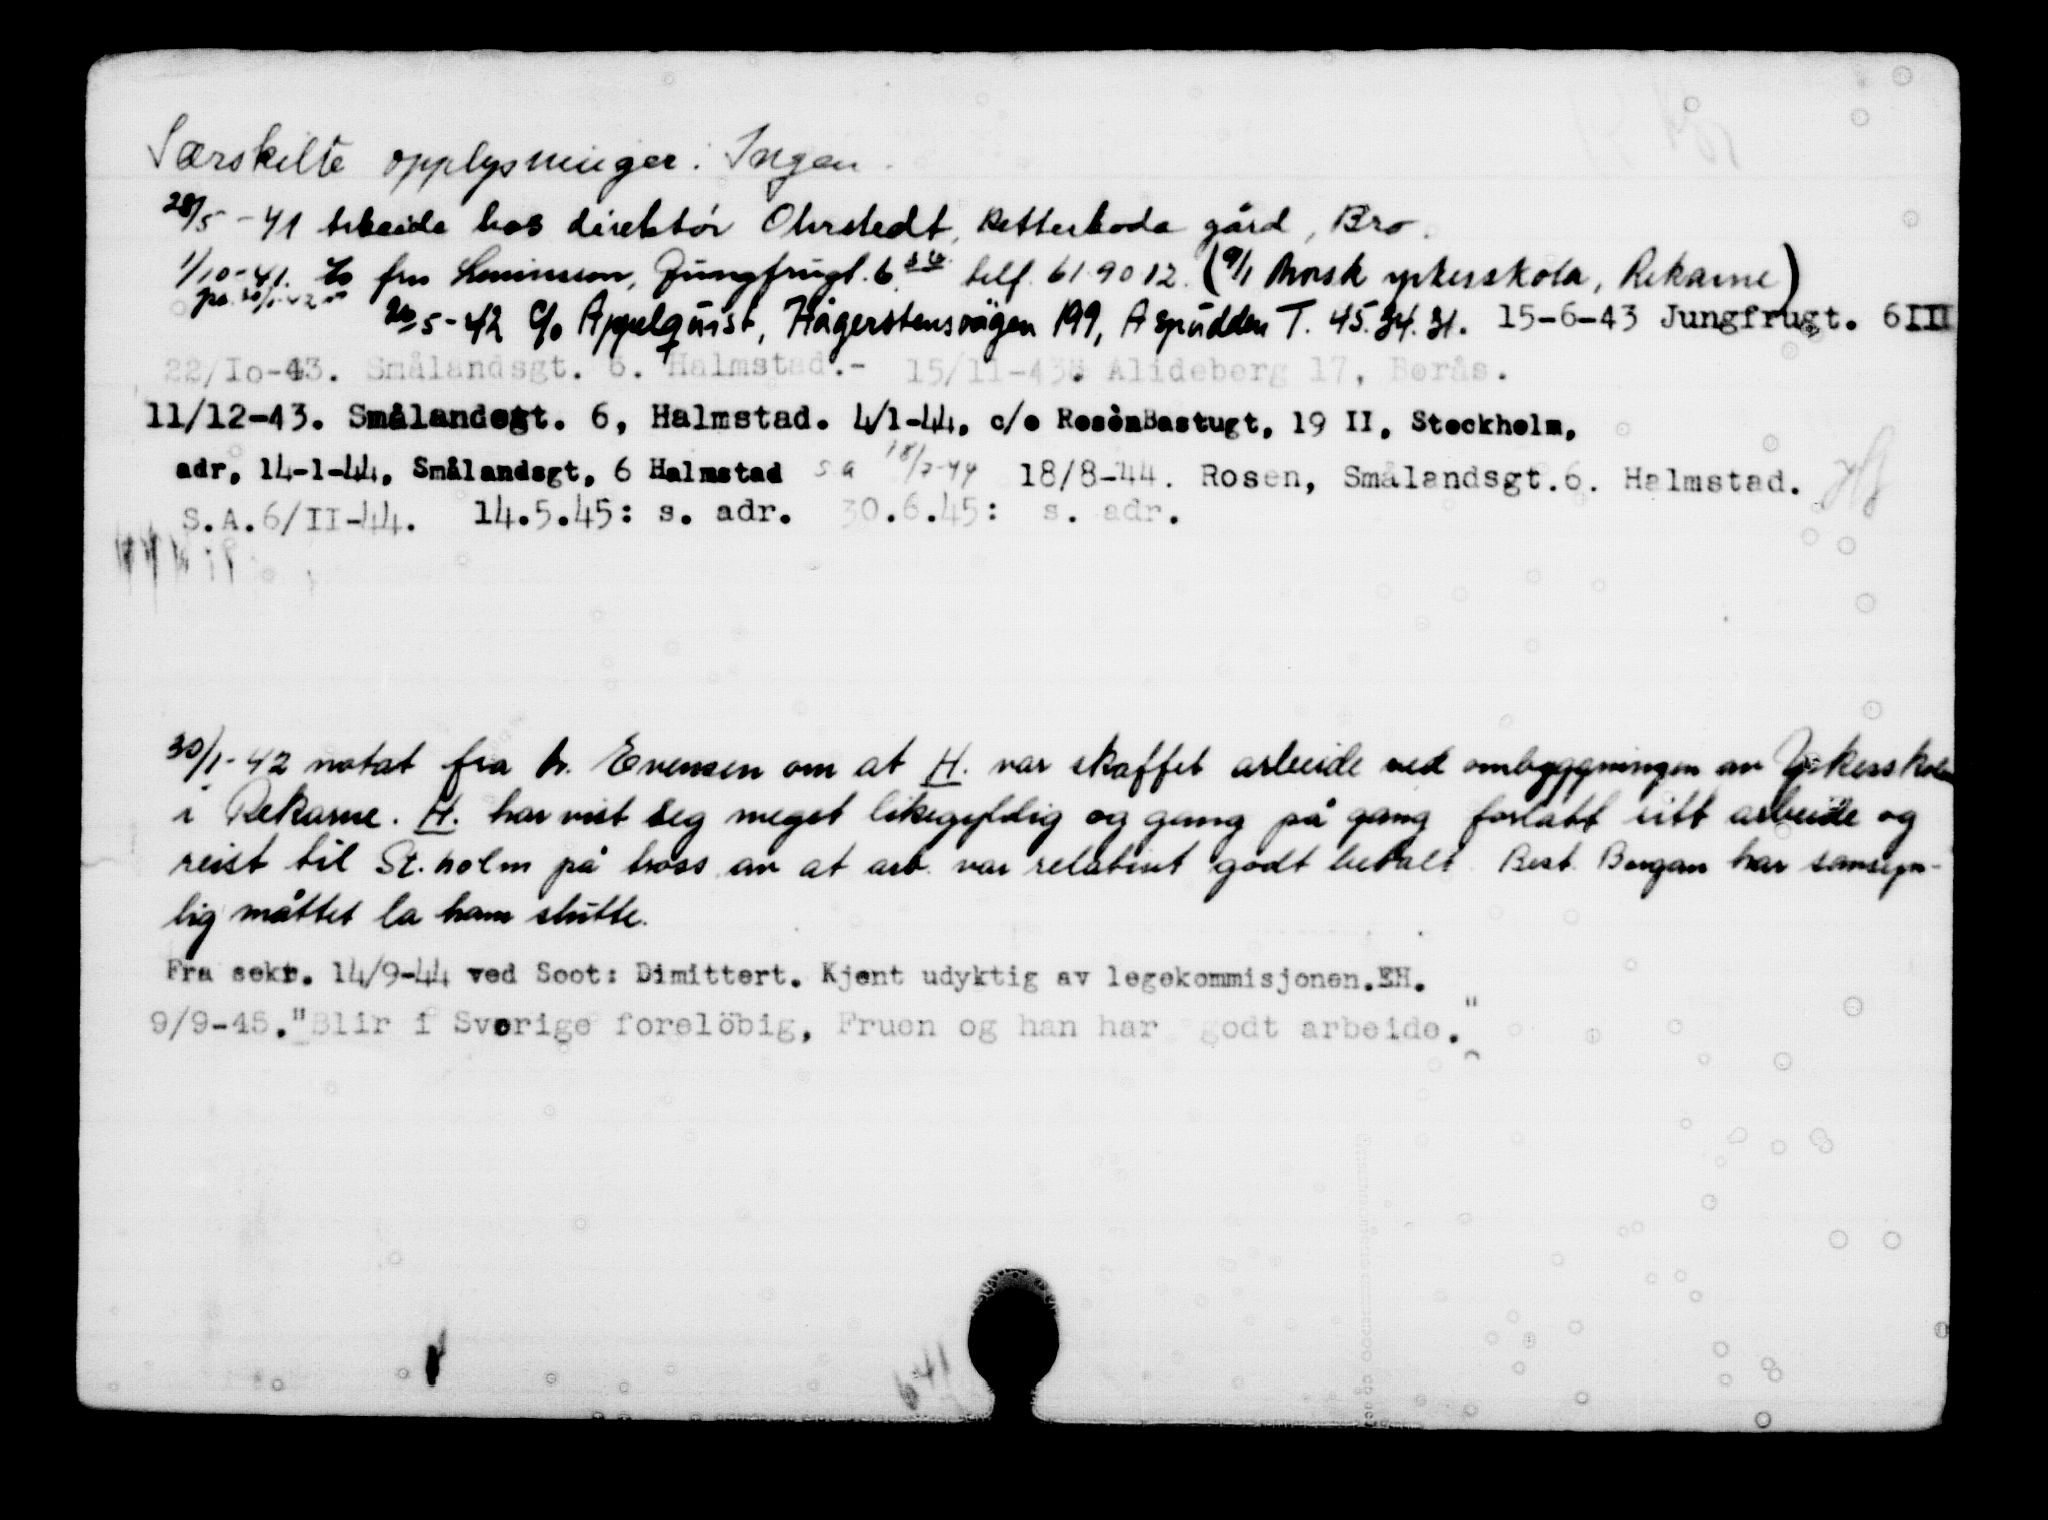 Særskilte opplysninger: Ingen.
28/5-41 Arbeide hos direktör Ohrstedt, Retterboda gård, Bro.
1/10-41. c/o fru Jungfrugt. 6 telf. 61 90 12. (9/1 Norsk yrkesskola, Rekarne)
20/5-42 c/o Appelquist, Hägerstensvägen 199, Aspudden T. 45.34.31. 15-6-43 Jungfrugt. 6III
22/Io-43. Smålandsgt. 6. Halmstad.- 15/11-43. Alideberg 17, Borås.
11/12-43. Smålandsgt. 6, Halmstad. 4/1-44, c/o RosènBastugt, 19 II, Stockholm,
adr, 14-1-44, Smålandsgt, 6 Halmstad s a 18/7-44 18/8-44. Rosen, Smålandsgt.6. Halmstad.
S.A.6/II-44. 14.5.45: s. adr. 30.6.45: s. adr.
30/1-42 notat fra h. Evensen om at H. var skaffet arbeide ved ombyggningen av Yrkesskolen
i Rekarne. H. har vist seg meget likegyldig og gang på gang forlatt sitt arbeide og
reist til St.holm på tross av at arb. var relativt godt betalt. Best. Bergan har sansyn-
lig måttet la ham slutte.
Fra sekr. 14/9-44 ved Soot: Dimittert. Kjent udyktig av legekommisjonen.EH.
9/9-45."Blir i Sverige forelöbig, Fruen og han har godt arbeide."